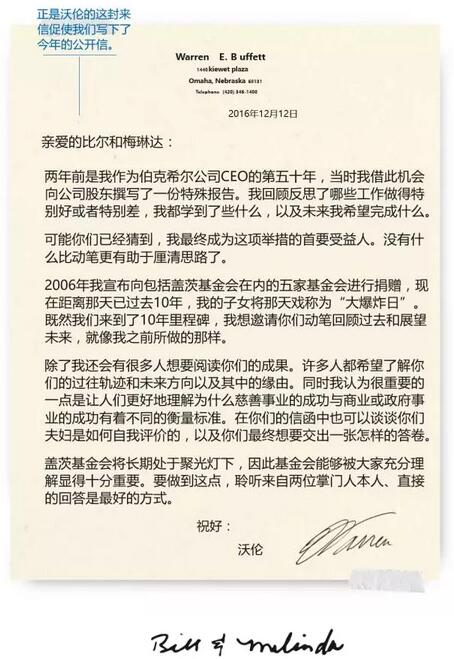 正是沃伦的这封来
信促使我们写下了
今年的公开信。
Warren E. B uffett
1440 kiewet plaza
Omaha, Nebraska 68131
Telephone (420) 346-1400
2016年12月12日
亲爱的比尔和梅琳达：
两年前是我作为伯克希尔公司CEO的第五十年，当时我借此机会
向公司股东撰写了一份特殊报告。我回顾反思了哪些工作做得特
别好或者特别差，我都学到了些什么，以及未来我希望完成什么。
可能你们已经猜到，我最终成为这项举措的首要受益人。没有什
么比动笔更有助于厘清思路了。
2006年我宣布向包括盖茨基金会在内的五家基金会进行捐赠，现
在距离那天已过去10年，我的子女将那天戏称为“大爆炸日”。
既然我们来到了10年里程碑，我想邀请你们动笔回顾过去和展望
未来，就像我之前所做的那样。
除了我还会有很多人想要阅读你们的成果。许多人都希望了解你
们的过往轨迹和未来方向以及其中的缘由。同时我认为很重要的
一点是让人们更好地理解为什么慈善事业的成功与商业或政府事
业的成功有着不同的衡量标准。在你们的信函中也可以谈谈你们
夫妇是如何自我评价的，以及你们最终想要交出一张怎样的答卷。
盖茨基金会将长期处于聚光灯下，因此基金会能够被大家充分理
解显得十分重要。要做到这点，聆听来自两位掌门人本人、直接
的回答是最好的方式。
祝好：
沃伦
Warren
Bill & Melinda